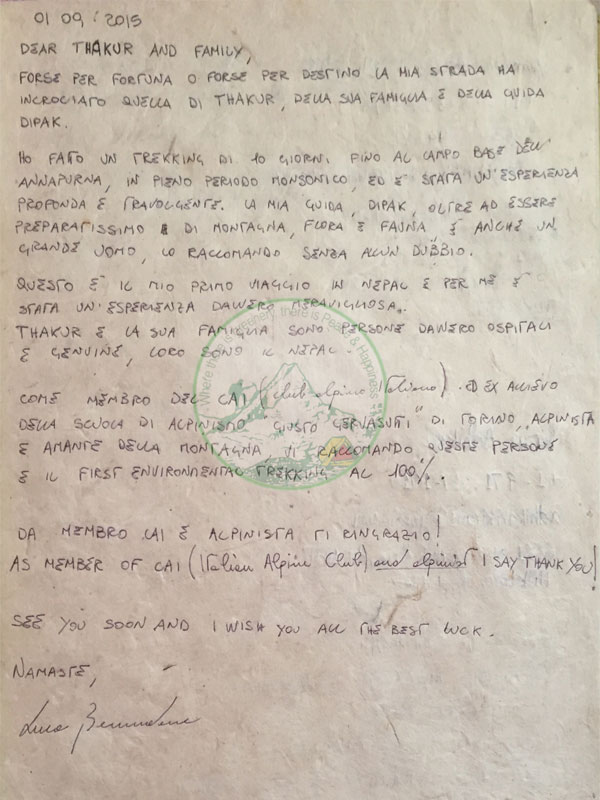 01 09 : 2015
DEAR THAKUR AND FAMILY,
FORSE PER FORTUNA O FORSE PER DESTINO LA MIA STRADA HA
INCROCIATO QUELLA DI THAKUR, DELLA SUA FAMIGLIA E DELLA GUIDA
DIPAK.
HO FATO UN TREKKING DI 10 GIORNI FINO AL CAMPO BASE DELL'
ANNAPURNA, IN PIENO PERIODO MONSONICO, ED È STATA UN'ESPERIENZA
PROFONDA E TRAVOLGENTE. LA MIA GUIDA, DIPAK, OLTRE AD ESSERE
PREPARATISSIMO DI MONTAGNA, FLORA E FAUNA È ANCHE UN
GRANDE UOMO, LO RACCOMANDO SENZA ALCUN DUBBIO.
QUESTO È IL MIO PRIMO VIAGGIO IN NEPAL E PER ME È
STATA UN'ESPERIENZA DAVVERO MERAVIGLIOSA.
THAKUR E LA SUA FAMIGLIA SONO PERSONE DAVVERO OSPITALI
E GENUINE, LORO SONO IL NEPAL.
COME MEMBRO DEL CAI (Club alpino Italiano) ED EX ALLIEVO
DELLA SCUOLA DI ALPINISMO "GIUSTO GERVASUTTI" DI TORINO, ALPINISTA
E AMANTE DELLA MONTAGNA VI RACCOMANDO QUESTE PERSONE
E IL FIRST ENVIRONMENTAL TREKKING AL 100%.
DA MEMBRO CAI E ALPINISTA TI RINGRAZIO!
AS MEMBER OF CAI (Italian Alpine Club) and alpinist I SAY THANK YOU!
SEE YOU SOON AND I WISH YOU ALL THE BEST LUCK.
NAMASTE,
Luca
Where there is there is Peace & Happiness